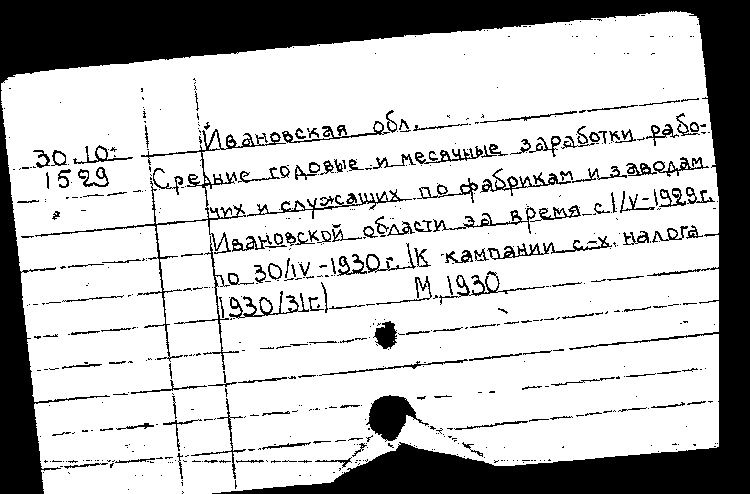 Ивановская обл.
30.10:
1529
Средние годовые и месячные заработки рабо-
чих и служащих по фабрикам и заводам
Ивановской области за время с 1/V-1929г.
по 30/IV-1930г. (К кампании с.-х. налога
1930/31г.) М., 1930